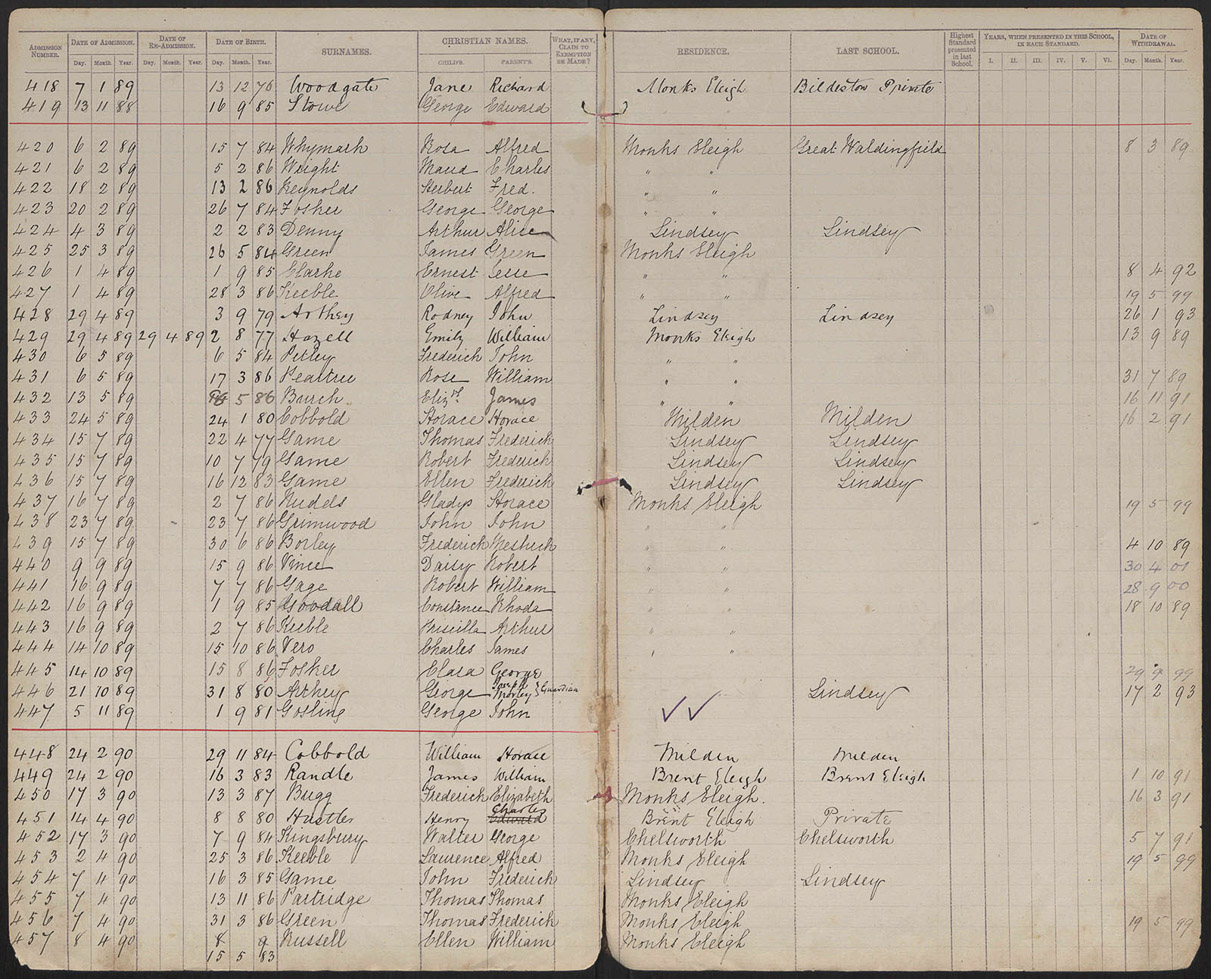 ADMISSION NUMBER. DATE OF ADMISSION. DATE OF RE-ADMISSION. DATE OF BIRTH. SURNAMES. CHRISTIAN NAMES. WHAT, IF ANY, CLAIM TO EXEMPTION BE MADE? RESIDENCE. LAST SCHOOL. Highest Standard presented in last School. YEARS, WHEN PRESENTED IN THIS SCHOOL, IN EACH STANDARD. DATE OF WITHDRAWAL.
Day. Month. Year. Day. Month. Year. Day. Month. Year. CHILD'S. PARENT'S. I. II. III. IV. V. VI. Day. Month. Year.
418 7 1 89 13 12 76 Woodgate Jane Richard Monks Eleigh Bildeston Private
419 13 11 88 16 9 85 Stowe George Edward
420 6 2 89 15 7 84 Whymark Rosa Alfred Monks Eleigh Great Waldingfield 8 3 89
421 6 2 89 5 2 86 Wright Maud Charles " "
422 18 2 89 13 2 86 Reynolds Herbert Fred. " "
423 20 2 89 26 7 84 Fosker George George " "
424 4 3 89 2 2 83 Denny Arthur Alice Lindsey Lindsey
425 25 3 89 26 5 84 Green James Green Monks Eleigh
426 1 4 89 1 9 85 Clarke Ernest Jesse " " 8 4 92
427 1 4 89 28 3 86 Keeble Olive Alfred " " 19 5 99
428 29 4 89 3 9 79 Arthey Rodney John Lindsey Lindsey 26 1 93
429 29 4 89 29 4 89 2 8 77 Hazell Emily William Monks Eleigh 13 9 89
430 6 5 89 6 5 84 Petley Frederick John " "
431 6 5 89 17 3 86 Peartree Rose William " " 31 7 89
432 13 5 89 5 86 Burch Eliz.th James " " 16 11 91
433 24 5 89 24 1 80 Cobbold Horace Horace Milden Milden 16 2 91
434 15 7 89 22 4 77 Game Thomas Frederick Lindsey Lindsey
435 15 7 89 10 7 79 Game Robert Frederick Lindsey Lindsey
436 15 7 89 16 12 83 Game Ellen Frederick Lindsey Lindsey
437 16 7 89 2 7 86 Nudds Gladys Horace Monks Eleigh 19 5 99
438 23 7 89 23 7 86 Grimwood John John " "
439 15 7 89 30 6 86 Borley Frederick " " 4 10 89
440 9 9 89 15 9 86 Vince Daisy Robert " " 30 4 01
441 16 9 89 7 7 86 Gage Robert William " " 28 9 00
442 16 9 89 1 9 85 Goodall Constance Rhoda " " 18 10 89
443 16 9 89 2 7 86 Keeble Priscilla Arthur " "
444 14 10 89 15 10 86 Vero Charles James " "
445 14 10 89 15 8 86 Fosker Clara George 29 9 99
446 21 10 89 31 8 80 Arthey George Joseph Morley } Guardian Lindsey 17 2 93
447 5 11 89 1 9 81 Gosling George John ✓✓
448 24 2 90 29 11 84 Cobbold William Horace Milden Milden
449 24 2 90 16 3 83 Randle James William Brent Eleigh Brent Eleigh 1 10 91
450 17 3 90 13 3 87 Bugg Frederick Elizabeth Monks Eleigh. 16 3 91
451 14 4 90 8 8 80 Hustler Henry Charles Edward Brent Eleigh Private
452 17 3 90 7 9 84 Kingsbury Walter George Chelsworth Chelsworth 5 7 91
453 2 4 90 25 3 86 Keeble Laurence Alfred Monks Eleigh 19 5 99
454 7 4 90 16 3 85 Game John Frederick Lindsey Lindsey
455 7 4 90 13 11 86 Partridge Thomas Thomas Monks Eleigh
456 7 4 90 31 3 86 Green Thomas Frederick Monks Eleigh 19 5 99
457 8 4 90 8 9 Russell Ellen William Monks Eleigh
15 5 83